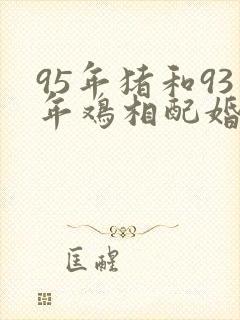 95年猪和93
年鸡相配婚
匡醒